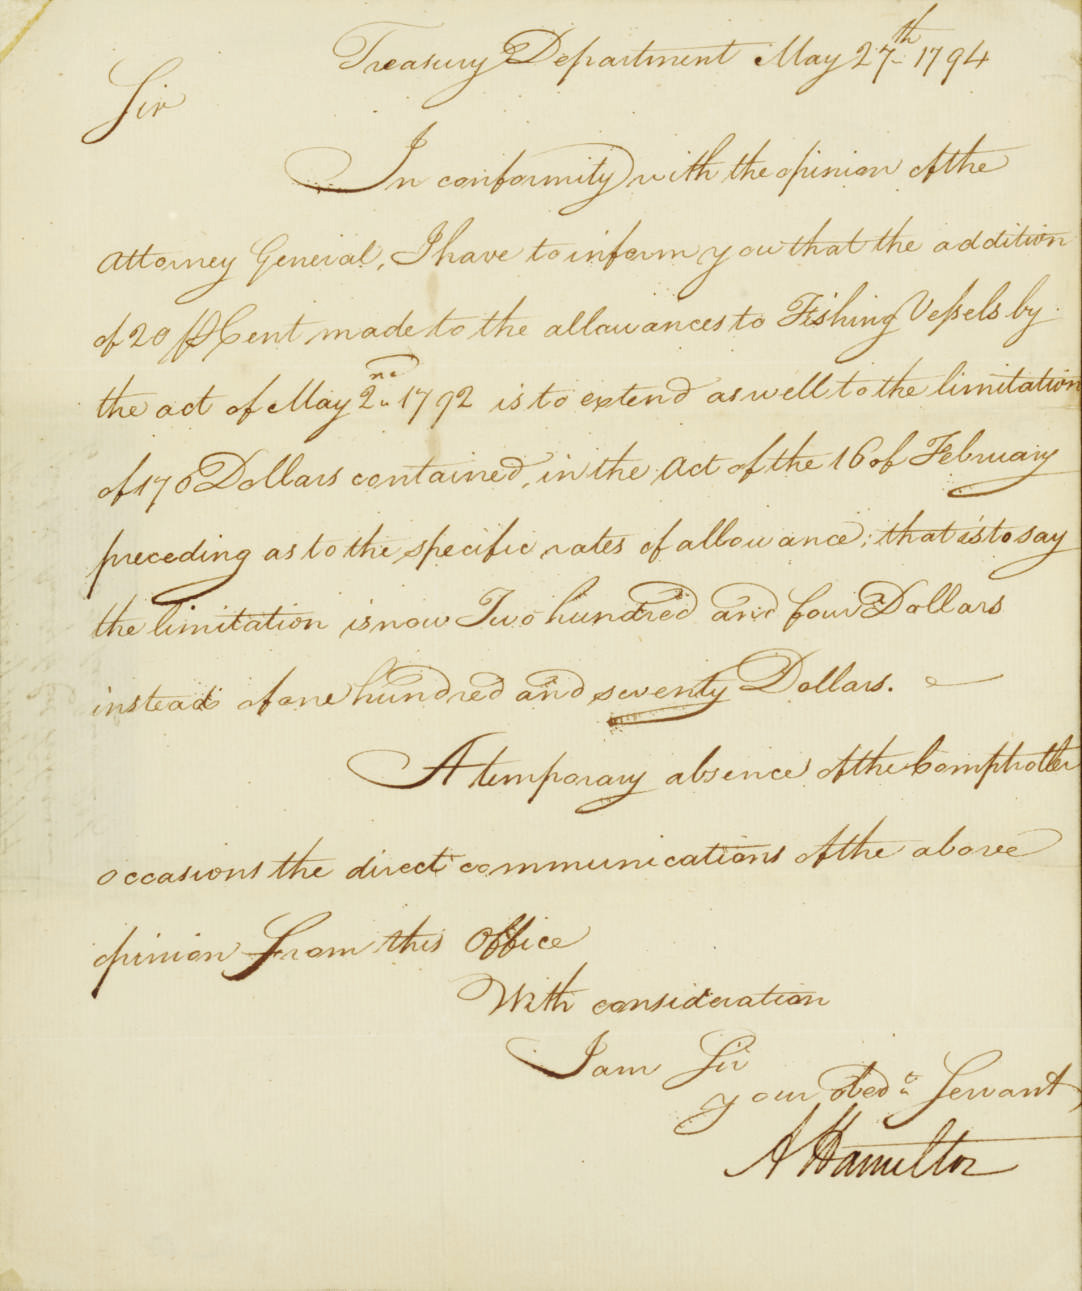 Treasury Department May 27th 1794
Sir
In conformity with the opinion of the
Attorney General, I have to inform you that the addition
of 20 ⅌ Cent made to the allowances to Fishing Veſsels by
the act of May 2nd 1792 is to extend as well to the limitation
of 170 Dollars contained, in the Act of the 16 of February
preceding as to the specific rates of allowance; that is to say
the limitation is now Two hundred and four Dollars
instead of one hundred and seventy Dollars.
A temporary absence of the Comptroller
occasions the direct communications of the above
opinion from this Office
With consideration
I am Sir
your Obedt Servant
A Hamilton